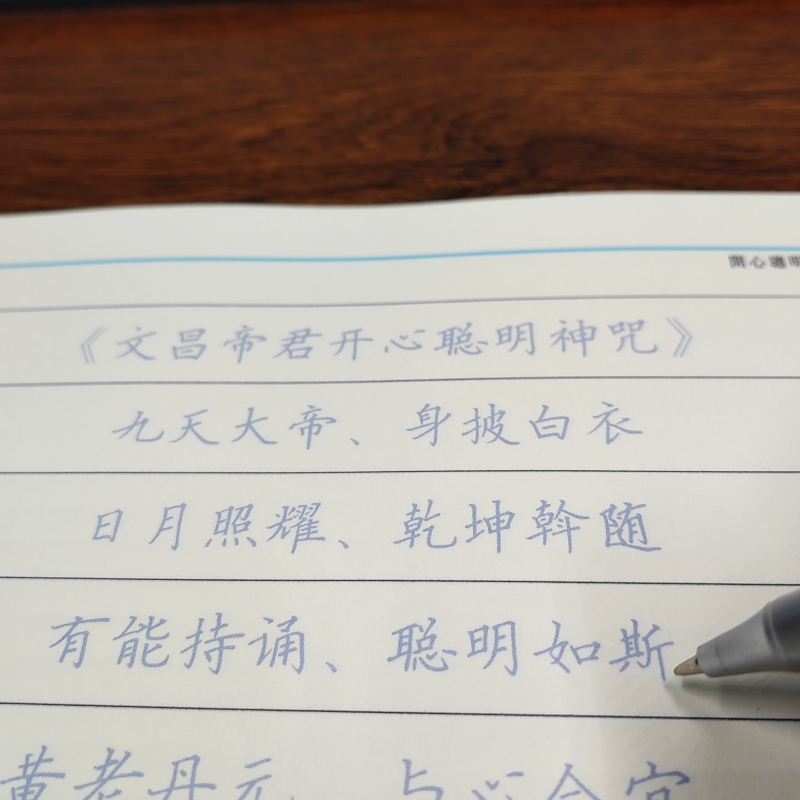 開心聰明
《文昌帝君开心聪明神咒》
九天大帝、身披白衣
日月照耀、乾坤斡随
有能持诵、聪明如斯
黄老丹元、与心合宜